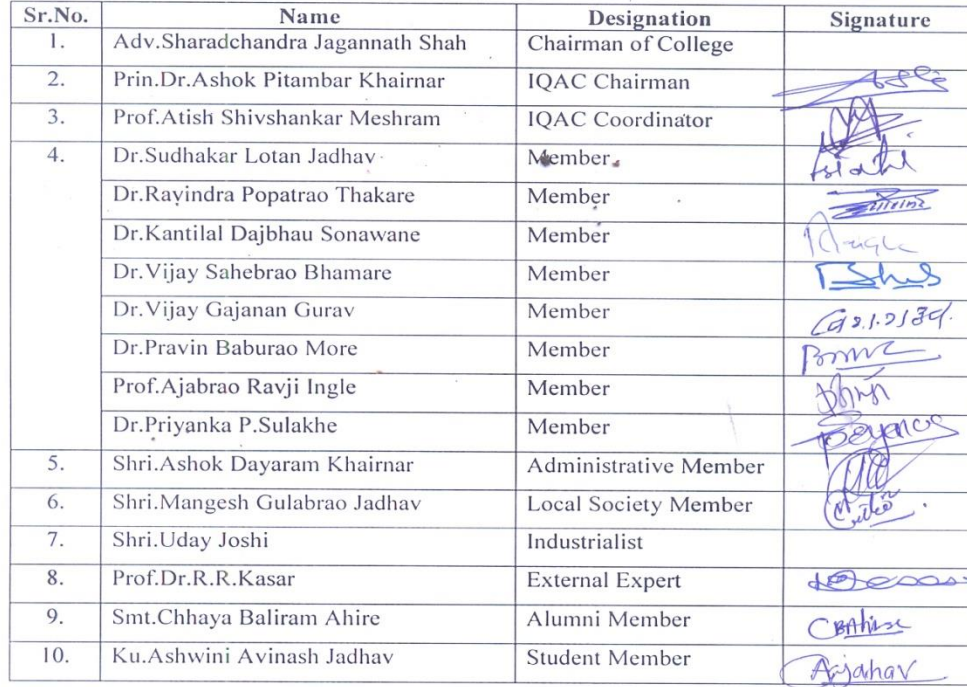 Sr.No. Name Designation Signature
1. Adv.Sharadchandra Jagannath Shah Chairman of College
2. Prin.Dr.Ashok Pitambar Khairnar IQAC Chairman
3. Prof.Atish Shivshankar Meshram IQAC Coordinator
4. Dr.Sudhakar Lotan Jadhav Member
Dr.Ravindra Popatrao Thakare Member
Dr.Kantilal Dajbhau Sonawane Member
Dr.Vijay Sahebrao Bhamare Member
Dr.Vijay Gajanan Gurav Member
Dr.Pravin Baburao More Member
Prof.Ajabrao Ravji Ingle Member
Dr.Priyanka P.Sulakhe Member
5. Shri.Ashok Dayaram Khairnar Administrative Member
6. Shri.Mangesh Gulabrao Jadhav Local Society Member
7. Shri.Uday Joshi Industrialist
8. Prof.Dr.R.R.Kasar External Expert
9. Smt.Chhaya Baliram Ahire Alumni Member CBAhire
10. Ku.Ashwini Avinash Jadhav Student Member Ajahav